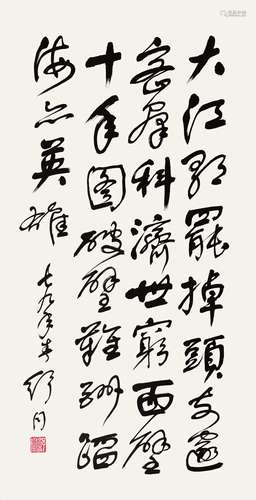 大江歌罷掉頭東邃
密群科濟世窮面壁
十年圖破壁難酬蹈
海亦英雄
七九年春
舒同